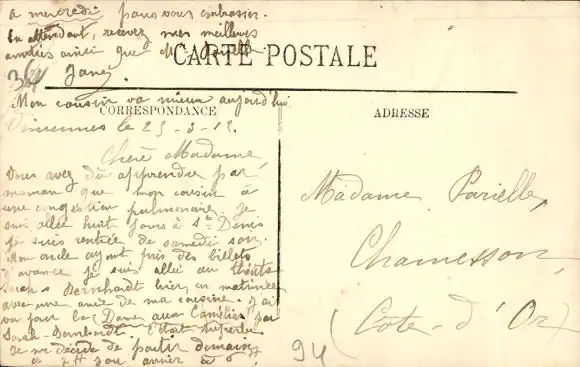 à mercredi pour vous embrasser.
En attendant, recevez mes meilleures
amitiés ainsi que Mr
Jane
Mon cousin va mieux aujourd'hui
CARTE POSTALE
CORRESPONDANCE
ADRESSE
Vincennes le 25-3-12.
Chère Madame,
Vous avez dû apprendre par
maman que mon cousin a
une congestion pulmonaire, je
suis allée huit jours à St Denis
je suis rentrée de samedi soir.
Mon oncle ayant pris des billets
d'avance je suis allée au théâtre
Sarah Bernhardt hier en matinée
avec une amie de ma cousine. J'ai
vu jouer la (Dame aux Camélias) par
Sarah-Bernhardt. C'était superbe
Je me décide de partir demain
pour arriver à
Madame Parielle,
Chamesson,
(Côte-d'Or)
94